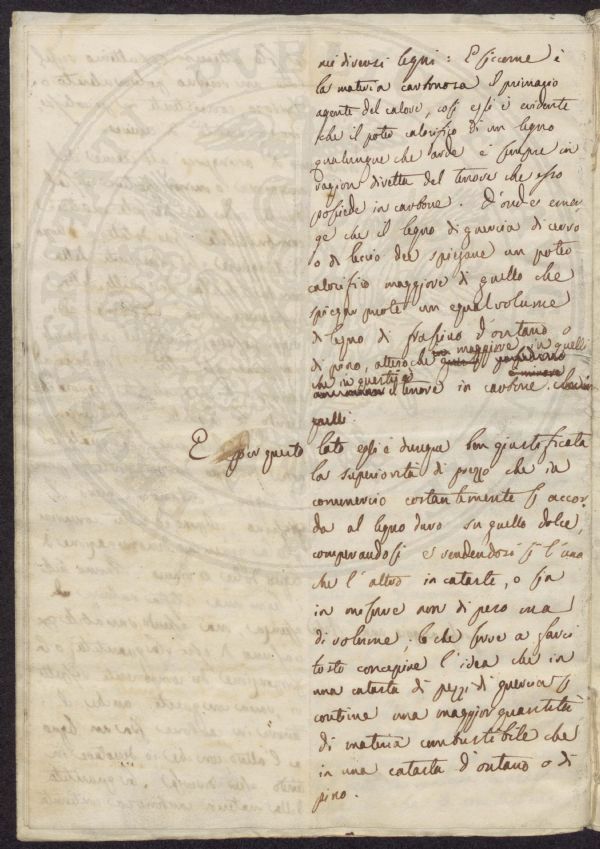 nei diversi legni: E siccome è
la materia carbonosa il primario
agente del calore, così egli è evidente
che il poter calorifico di un legno
qualunque che arde è sempre in
ragion diretta del tenore che esso
possiede in carbone. D'onde emer
ge che il legno di quercia di cerro
o di leccio dee spiegare un poter
calorifico maggiore di quello che
spiegar puote un egual volume
di legno di frassino d'ontano o
di pino, attesochè maggiore in quelli
che in questi è
il tenore in carbone.
quelli.
E per questo lato egli è dunque ben giustificata
la superiorità di prezzo che in
commercio costantemente si accor
da al legno duro su quello dolce,
comperandosi e vendendosi sì l'uno
che l'altro in cataste, o sia
in misure non di peso ma
di volume; lo che serve a farci
tosto concepire l'idea che in
una catasta di pezzi di quercia si
contiene una maggior quantità
di materia combustibile che
in una catasta d'ontano o di
pino.